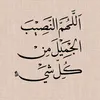 اللهم النصيب
الجميل من
كل شيء